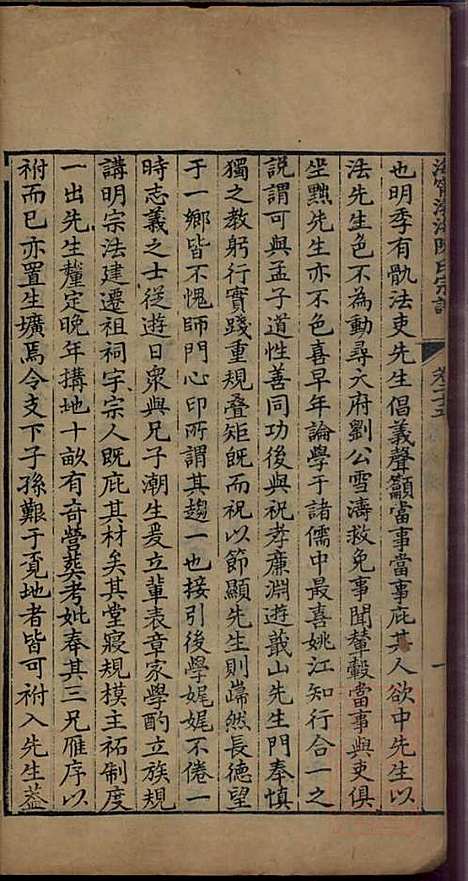 海寧渤海陳氏宗譜 卷二十五 一
也明季有骩法吏先生倡義聲籲當事當事庇其人欲中先生以
法先生色不為動尋大府劉公雪濤救免事聞輦轂當事與吏俱
坐黜先生亦不色喜早年論學于諸儒中最喜姚江知行合一之
說謂可與孟子道性善同功後與祝孝廉淵遊蕺山先生門奉慎
獨之教躬行實踐重規疊矩旣而祝以節顯先生則端然長德望
于一鄉皆不愧師門心印所謂其趨一也接引後學娓娓不倦一
時志義之士從遊日衆與兄子潮生爰立輩表章家學酌立族規
講明宗法建遷祖祠宇宗人旣庇其材矣其堂寢規模主祏制度
一出先生釐定晚年搆地十畝有奇營葬考妣奉其三兄雁序以
祔而已亦置生壙焉令支下子孫艱于覓地者皆可祔入先生葢